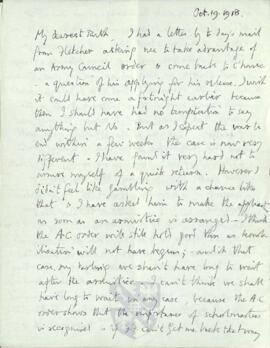 Oct. 19. 1918.
My dearest Ruth - I had a letter by to day's mail
from Fletcher asking me to take advantage of
an Army Council order to come back to C'house
- a question of his applying for his release. I wish
it could have come a fortnight earlier because
then I should have had no temptation to say
anything but No. But as I expect the war to
end within a few weeks the case is now very
different - I have found it very hard not to
assure myself of a quick return. However I
didn't feel like gambling with a chance like
that & I have asked him to make the application
as soon as an armistice is arranged - I think
the A C order will still hold good then as demob-
ilisation will not have begun; and in that
case, my darling we shan't have long to wait
after the armistice. I can't think we shall
have long to wait in any case, because the A C
order shows that the importance of schoolmasters
is recognised - if can't get me back that way